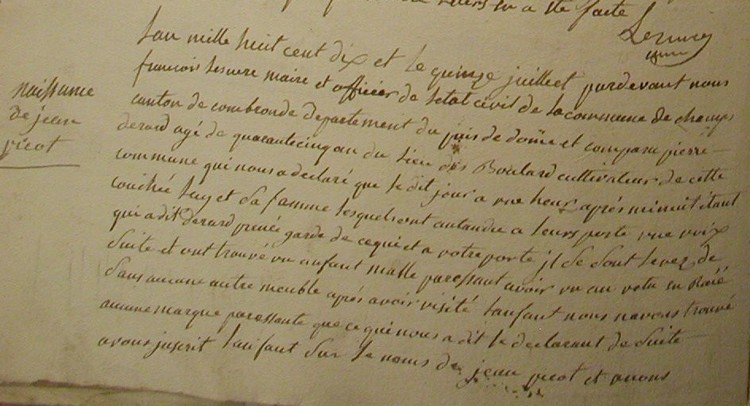 a été faite
Lesuvre
L'an mille huit cent dix et le quinze juillet pardevant nous
françois Lesuvre maire et officier de letat civil de la commune de champs
naissance
de jean
picot
canton de combronde departement du puis de dome et comparu pierre
derard agé de quarantecinq an du lieu des Boulard cultivateur de cette
commune qui nous a declaré que le dit jour a une heur après minuit étant
couchée luy et sa famme lesquel ont antandu a leurs porte une voix
qui a dit derard prené garde de ce qui et a votre porte jl se sont levez de
suite et ont trouvé un anfant malle paressant avoir un an vetu en
sans aucune autre meuble après avoir visité lanfant nous navons trouvé
aucune marque paressante que ce qui nous a dit le declarant de suite
avons jnscrit lanfant sur le noms de jean picot et avons